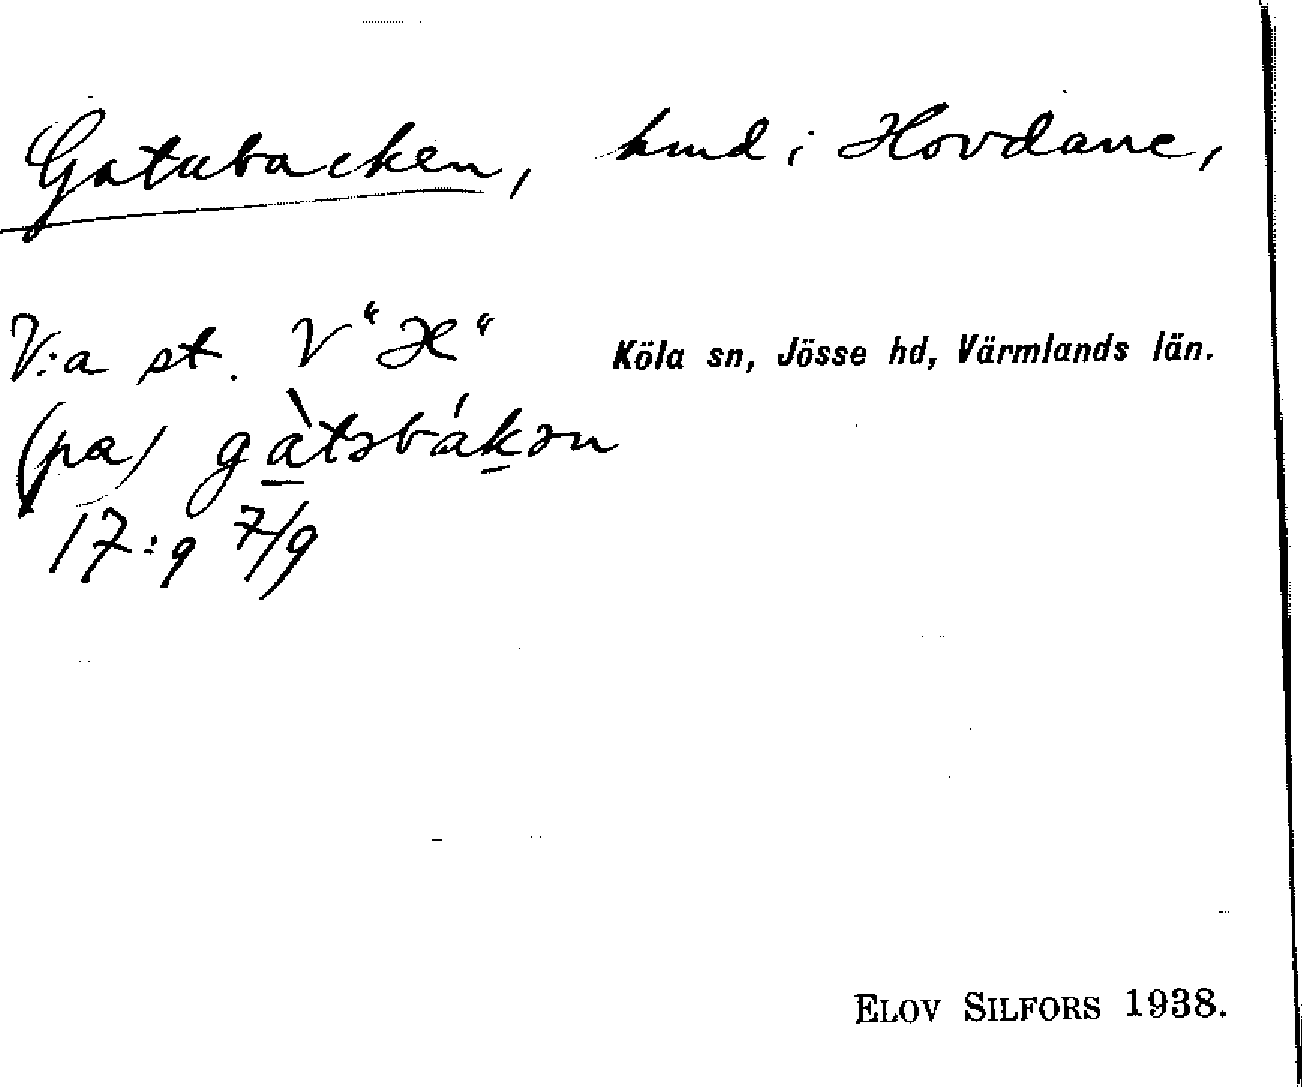 Gatubacken, hmd i Hovdane,
V:a st. V "H" Köla sn, Jösse hd, Värmlands län.
(pa) gàtəbákən
17:9 7/9
ELOV SILFORS 1938.